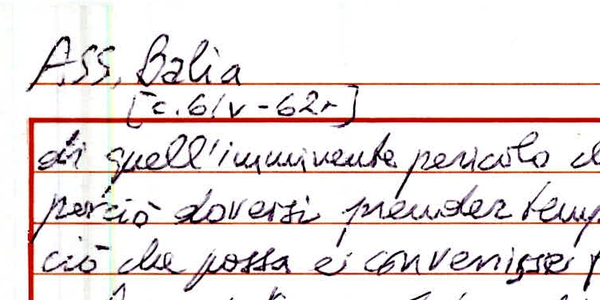 Ass. Balia
[c. 61v - 62r]
di quell'imminente pericolo
perciò doversi prender
ciò che possa e convenisse